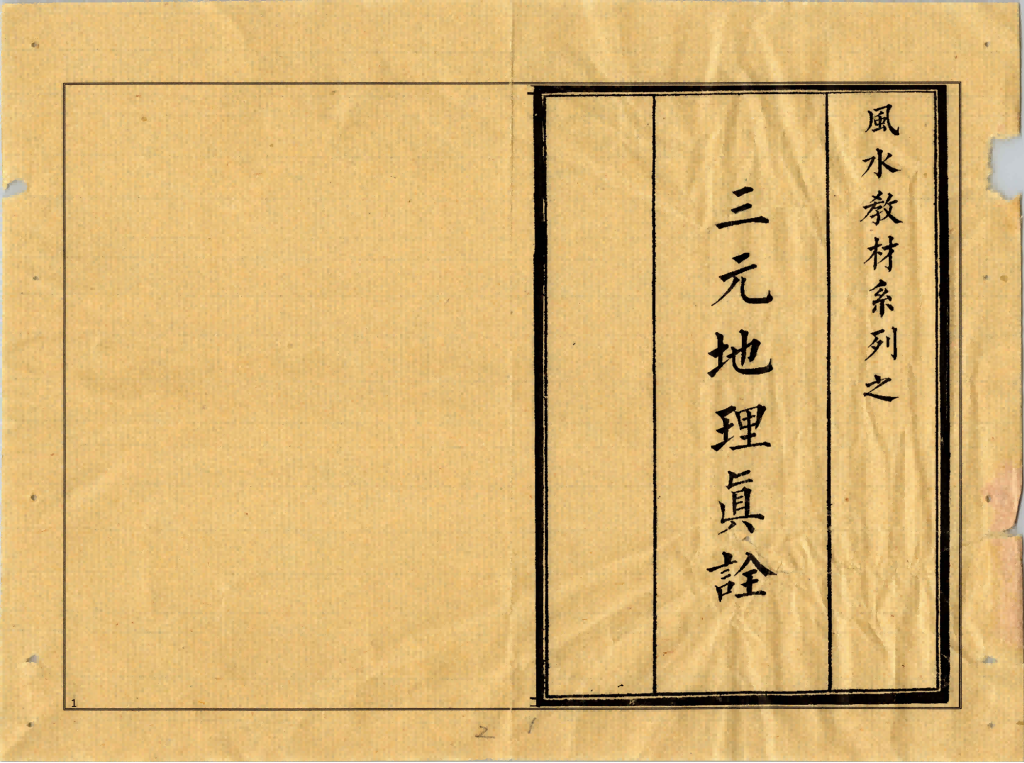 風水教材系列之
三元地理眞詮
1
2 1